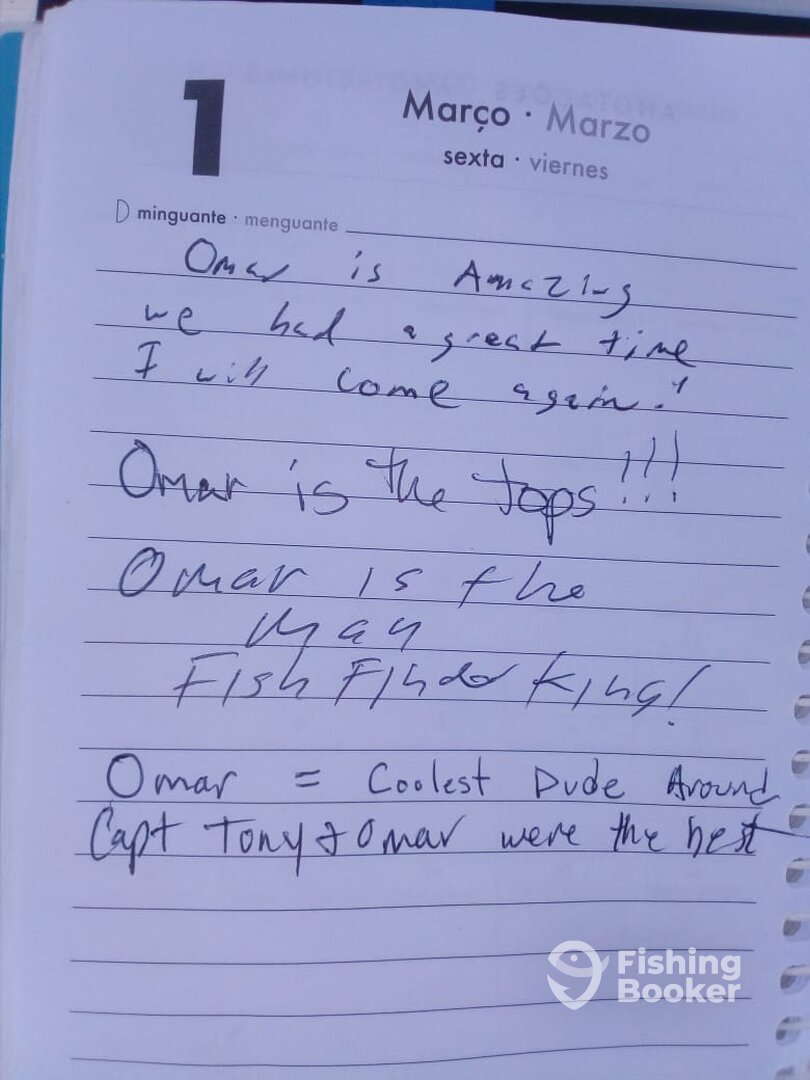 1
Março · Marzo
sexta · viernes
minguante · menguante
Omar is Amazing
we had a great time
I will come again!
Omar is the tops!!!
Omar is the
man
Fish Finder King!
Omar = Coolest Dude Around
Capt Tony & Omar were the best
Fishing
Booker